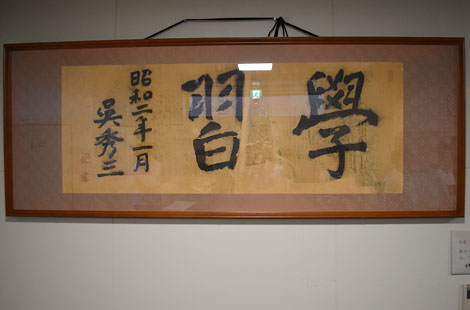 學習
昭和二年一月
吳秀三